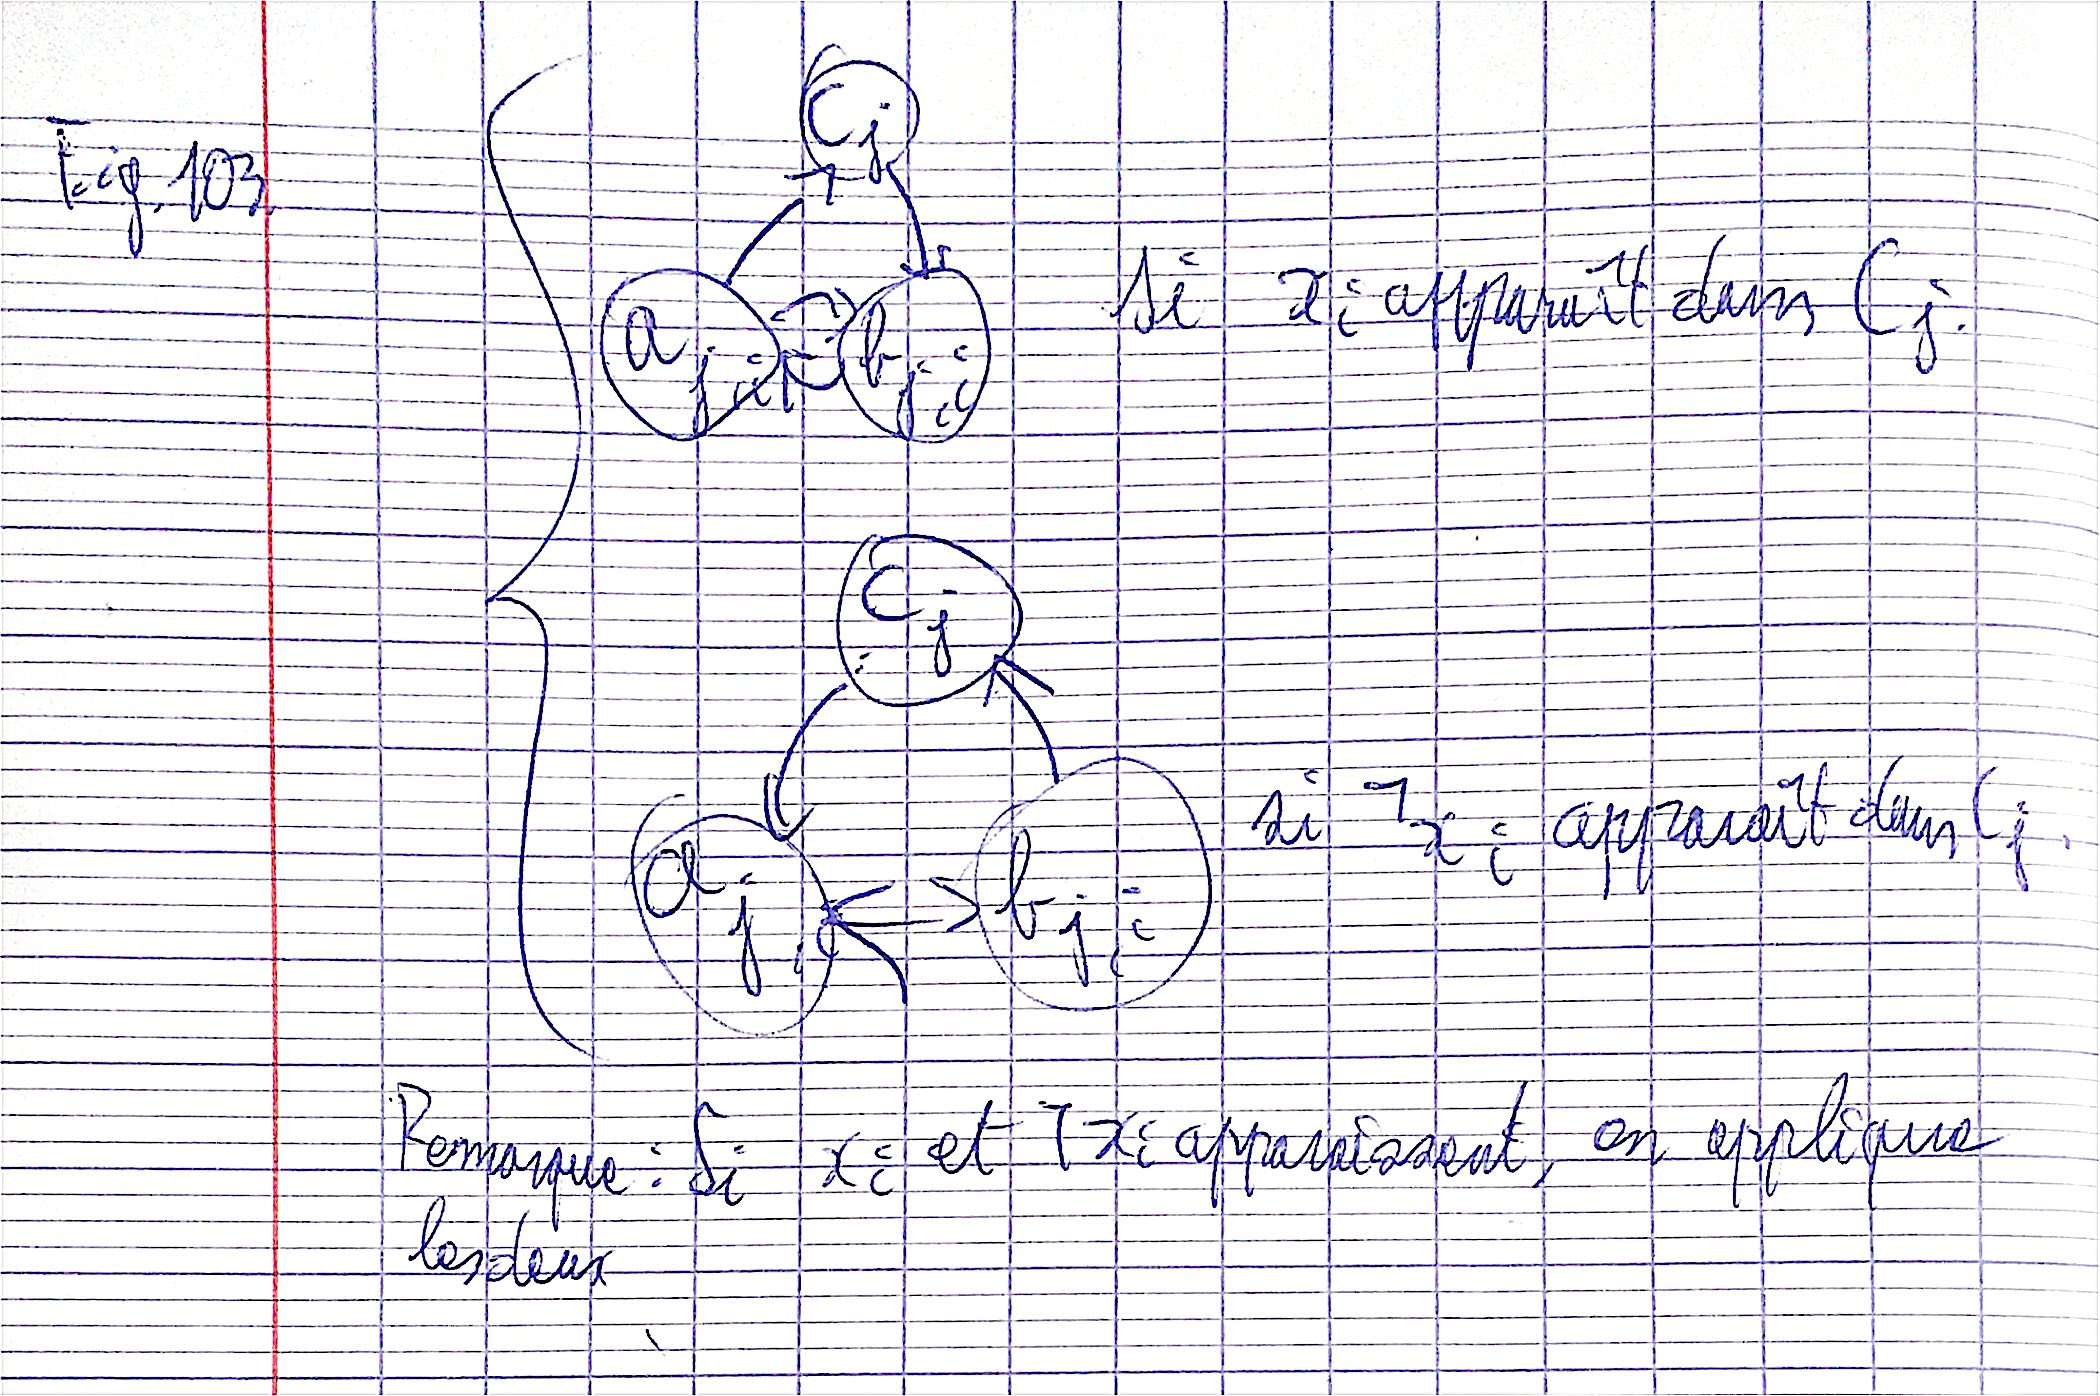 Fig. 103
C j
a j i
b j i
Si x i apparaît dans C j.
C j
a j i
b j i
si ¬x i apparaît dans C j.
Remarque : Si x i et ¬x i apparaissent, on applique
les deux